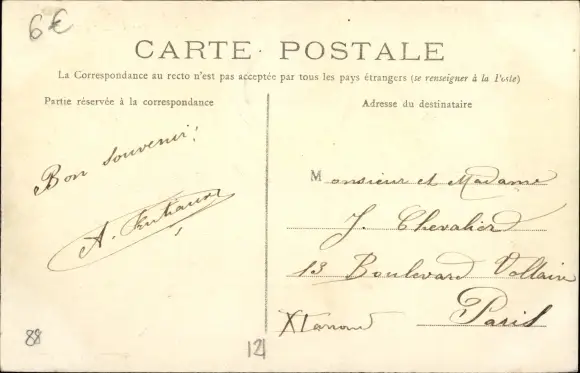 6€
CARTE POSTALE
La Correspondance au recto n'est pas acceptée par tous les pays étrangers (se renseigner à la Poste)
Partie réservée à la correspondance
Adresse du destinataire
Bon souvenir!
A.
Monsieur et Madame
J. Chevalier
13 Boulevard Voltaire
Paris
88
121